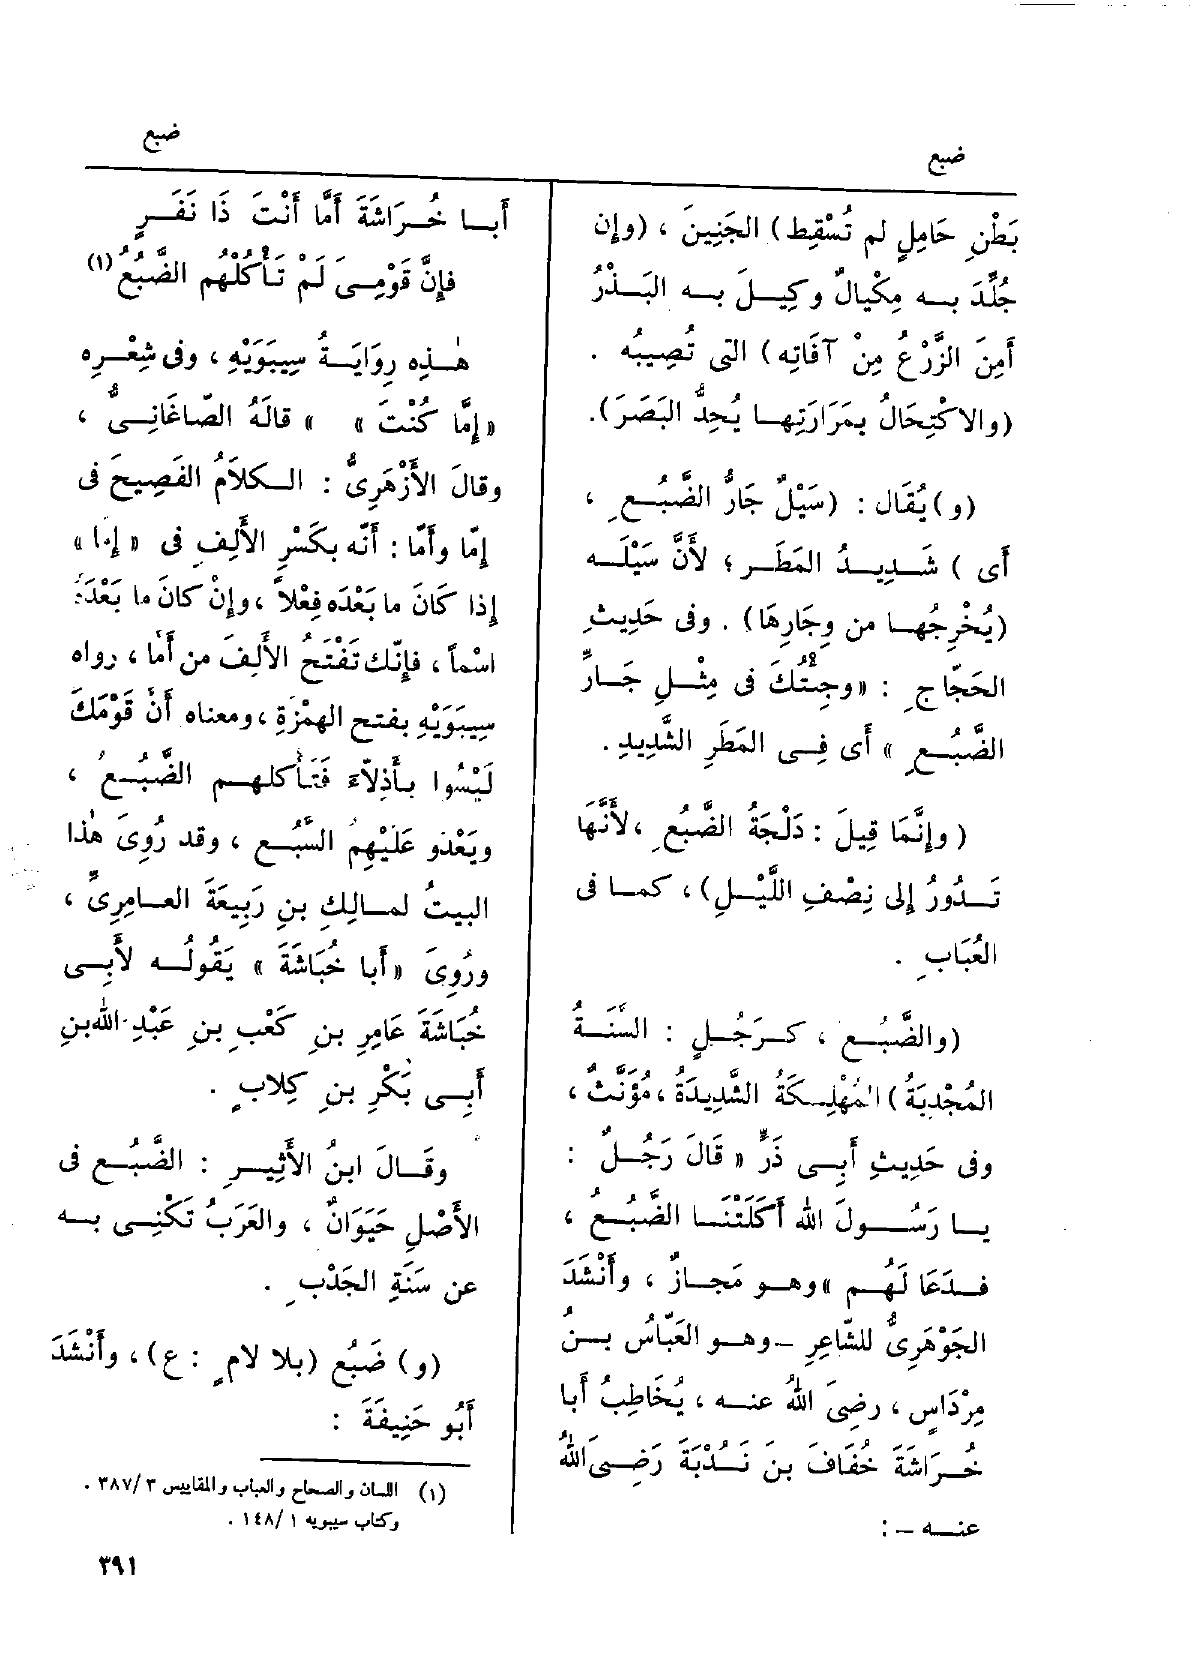 ضبع
ضبع
بَطْنِ حَامِلٍ لم تُسْقِط) الجَنِينَ ، (وإن
جُلِّدَ بـه مِكْيالٌ وكِيـلَ بـه البَـذْرُ
أَمِنَ الزَّرْعُ مِنْ آفَاتِه) التى تُصِيبُه .
(والاكْتِحَالُ بمَرَارَتِهـا يُحِدُّ البَصَرَ).
(و) يُقَال : (سَيْلٌ جَارُّ الضَّبُـعِ ،
أى ) شَـدِيـدُ المَطَـرِ ؛ لأَنَّ سَيْلَـه
(يُخْرِجُهـا من وِجَارِهَا) . وفى حَدِيثِ
الحَجّاجِ : «وجِئْتُكَ فى مِثْـلِ جَـارِّ
الضَّبُـعِ » أى فِـى المَطَرِ الشَّدِيدِ.
( وإنَّمَا قِيلَ : دَلْجَةُ الضَّبُعِ ، لأَنَّهَا
تَـدُورُ إلى نِصْفِ اللَّيْـلِ) ، كمـا فى
العُبَابِ .
(والضَّبُـع ، كـرَجُـلٍ : السَّنَـةُ
المُجْدِبَةُ ) المُهْلِـكَةُ الشَّدِيدَةُ ، مُؤَنَّثٌ ،
وفى حَدِيثِ أَبِـى ذَرٍّ « قَالَ رَجُـلٌ :
يـا رَسُـولَ الله أَكَلَتْنَـا الضَّبُـعُ ،
فـدَعَا لَهُـم » وهـو مَجـازٌ ، وأَنْشَدَ
الجَوْهَرِىُّ للشّاعِرِ ــ وهـو العَبّاسُ بـنُ
مِرْدَاسٍ ، رضِىَ اللهُ عنـه ، يُخَاطِبُ أَبا
خُـرَاشَةَ خُفَافَ بنَ نَـدْبَةَ رَضِـىَ اللهُ
عنـه ــ :
أَبـا خُـرَاشَةَ أَمَّا أَنْتَ ذَا نَفَـرٍ
فإنَّ قَوْمِـىَ لَمْ تَأْكُلْهُم الضَّبُعُ (١)
هٰـذِه رِوَايَـةُ سِيبَوَيْهِ ، وفى شِعْـرِه
« إمَّا كُنْتَ » » قالَهُ الصّاغَانِـىُّ ،
وقالَ الأَزْهَرِىُّ : الـكلاَمُ الفَصِيحُ فى
إمّا وأَمّا : أَنّه بكَسْرِ الأَلِفِ فى « إمّا »
إذا كَانَ ما بَعْدَه فِعْلاً ، وإنْ كانَ ما بَعْدَهُ
اسْماً ، فإنّك تَفْتَحُ الأَلِفَ من أَمّا ، رواه
سِيبَوَيْهِ بفتح الهمْزةِ ، ومعناه أَنّ قَوْمَكَ
لَيْسُوا بـأَذِلّاءَ فَتَأْكلهـم الضَّبُـعُ ،
ويَعْدُو عَلَيْهِمُ السَّبُـع ، وقد رُوِىَ هٰذا
البيتُ لمـالِكِ بنِ رَبِيعَةَ العـامِرِىِّ ،
ورُوِىَ «أَبا خُبَاشَةَ » يَقُولُـه لأَبِـى
خُبَاشَةَ عَامِرِ بنِ كَعْبِ بنِ عَبْدِ اللهِ بنِ
أَبِـى بَكْرِ بنِ كِلابٍ .
وقَـالَ ابنُ الأَثِيـرِ : الضَّبُـع فى
الأَصْلِ حَيَوَانٌ ، والعَرَبُ تَكْنِـى بـه
عن سَنَةِ الجَدْبِ .
(و) ضَبُع (بلا لامٍ : ع) ، وأَنْشَدَ
أَبُو حَنِيفَةَ :
(١) اللسان والصحاح والعباب والمقاييس ٣ /٣٨٧ .
وكتاب سيبويه ١ /١٤٨ .
٣٩١